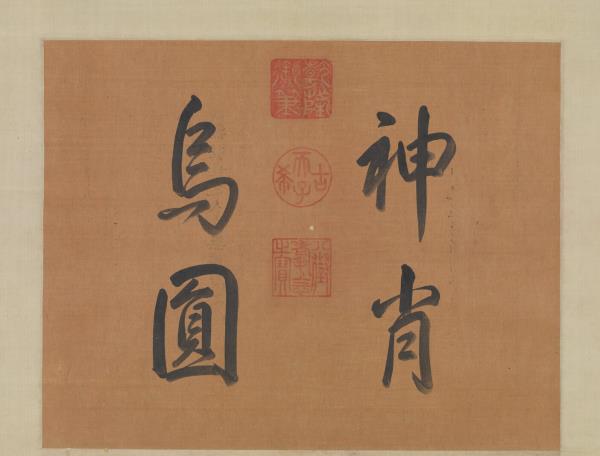 神肖
乾隆御筆
古希天子
八徵耄念之寶
烏圓